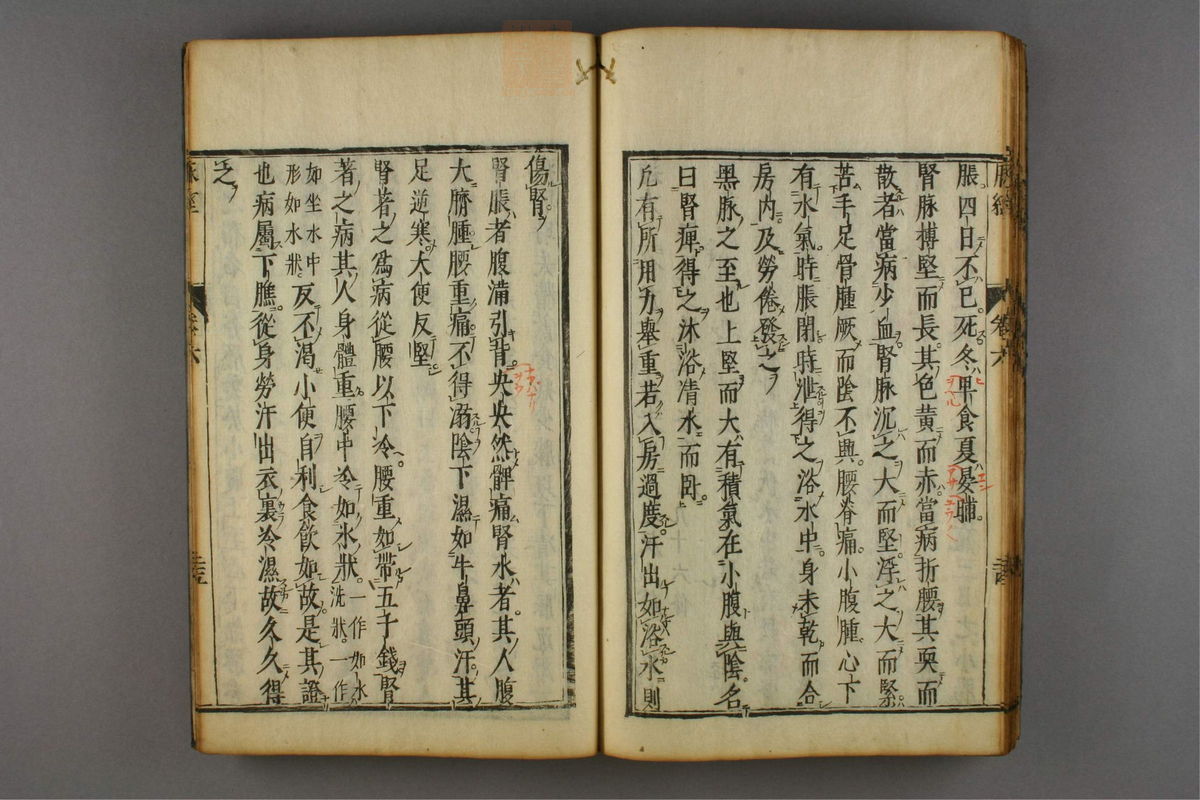 脹四日不已死冬暴食夏晏晡
腎脉搏堅而長其色黄而赤當病折腰其耎而
散者當病少血腎脉沉之大而堅浮之大而緊
苦手足骨腫厥而陰不興腰脊痛小腹腫心下
有水氣時脹閉時泄得之浴水中身未乾而合
房内及勞倦發之
黑脉之至也上堅而大有積氣在小腹與陰名
曰腎痺得之沐浴清水而卧
凡有所用力舉重若入房過度汗出如浴水則
傷腎
腎脹者腹滿引背央央然髀痛腎水者其人腹
大臍腫腰重痛不得溺陰下濕如牛鼻頭汗其
足逆寒大便反堅
腎著之爲病從腰以下冷腰重如帶五千錢腎
著之病其人身體重腰中冷如氷狀一作如水洗狀一作
如坐水中形如水狀反不渴小便自利食飲如故是其證
也病屬下膲從身勞汗出衣裏冷濕故久久得
之
脉經
卷六